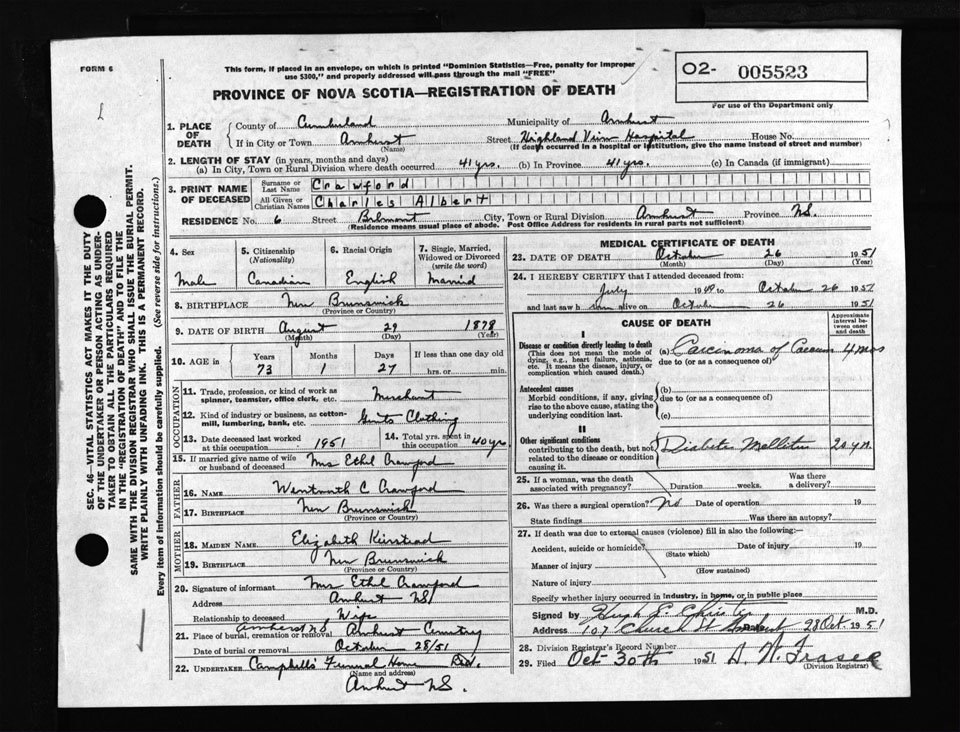 FORM 6
This form, if placed in an envelope, on which is printed "Dominion Statistics—Free, penalty for improper
use $300," and properly addressed will pass through the mail "FREE"
PROVINCE OF NOVA SCOTIA—REGISTRATION OF DEATH
02- 005523
For use of the Department only
1. PLACE OF DEATH
County of Cumberland Municipality of Amherst
If in City or Town Amherst Street Highland View Hospital House No.
(Name) (If death occurred in a hospital or institution, give name instead of street and number)
2. LENGTH OF STAY (in years, months and days)
(a) In City, Town or Rural Division where death occurred 41 yrs. (b) In Province 41 yrs. (c) In Canada (if immigrant)
3. PRINT NAME OF DECEASED
Surname or Last Name Crawford
All Given or Christian Names Charles Albert
RESIDENCE No. 6 Street Belmont City, Town or Rural Division Amherst Province N.S.
(Residence means usual place of abode. Post Office Address for residents in rural parts not sufficient)
4. Sex
Male
5. Citizenship (Nationality)
Canadian
6. Racial Origin
English
7. Single, Married, Widowed or Divorced (write the word)
Married
8. BIRTHPLACE New Brunswick
(Province or Country)
9. DATE OF BIRTH August 29 1878
(Month) (Day) (Year)
10. AGE in Years Months Days If less than one day old
73 1 27 hrs. or min.
OCCUPATION
11. Trade, profession, or kind of work as spinner, teamster, office clerk, etc. Merchant
12. Kind of industry or business, as cotton-mill, lumbering, bank, etc. Gents Clothing
13. Date deceased last worked at this occupation 1951
14. Total yrs. spent in this occupation 40 yrs
15. If married give name of wife or husband of deceased Mrs Ethel Crawford
FATHER
16. NAME Wentworth C Crawford
17. BIRTHPLACE New Brunswick
(Province or Country)
MOTHER
18. MAIDEN NAME Elizabeth
19. BIRTHPLACE New Brunswick
(Province or Country)
20. Signature of informant Mrs Ethel Crawford
Address Amherst NS
Relationship to deceased Wife
Amherst N.S.
21. Place of burial, cremation or removal Amherst Cemetery
Date of burial or removal October 28/51
22. UNDERTAKER Campbells' Funeral Home
(Name and address)
Amherst NS.
MEDICAL CERTIFICATE OF DEATH
23. DATE OF DEATH October 26 1951
(Month) (Day) (Year)
24. I HEREBY CERTIFY that I attended deceased from:
July 1949 to October 26 1951
and last saw h him alive on October 26 1951
CAUSE OF DEATH
Approximate interval between onset and death
I
Disease or condition directly leading to death
(This does not mean the mode of dying, e.g., heart failure, asthenia, etc. It means the disease, injury, or complication which caused death.)
(a) Carcinoma of Caecum 4 mos
due to (or as a consequence of)
Antecedent causes
Morbid conditions, if any, giving rise to the above cause, stating the underlying condition last.
(b)
due to (or as a consequence of)
(c)
II
Other significant conditions
contributing to the death, but not related to the disease or condition causing it.
Diabetes Mellitus 20 yrs.
25. If a woman, was the death associated with pregnancy? Duration weeks. Was there a delivery?
26. Was there a surgical operation? No Date of operation 19
State findings Was there an autopsy?
27. If death was due to external causes (violence) fill in also the following:
Accident, suicide or homicide? Date of injury 19
(State which)
Manner of injury
(How sustained)
Nature of injury
Specify whether injury occurred in Industry, in home, or in public place
Signed by Hugh E. Christie M.D.
Address 107 Church St Amherst 28 Oct. 1951
28. Division Registrar's Record Number
29. Filed Oct 30th 1951 A. W. Fraser
(Division Registrar)
SEC. 46—VITAL STATISTICS ACT MAKES IT THE DUTY
OF THE UNDERTAKER OR PERSON ACTING AS UNDER-
TAKER TO OBTAIN ALL THE PARTICULARS REQUIRED
IN THE "REGISTRATION OF DEATH" AND TO FILE THE
SAME WITH THE DIVISION REGISTRAR WHO SHALL ISSUE THE BURIAL PERMIT.
WRITE PLAINLY WITH UNFADING INK. THIS IS A PERMANENT RECORD.
Every item of information should be carefully supplied. (See reverse side for instructions.)